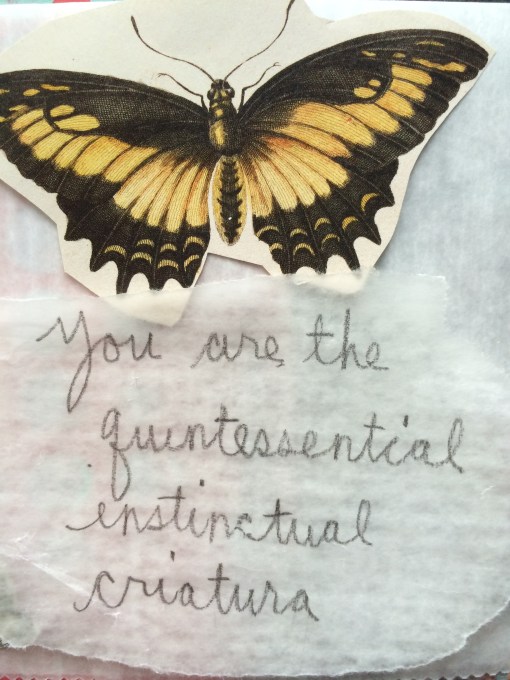 You are the
quintessential
instinctual
criatura